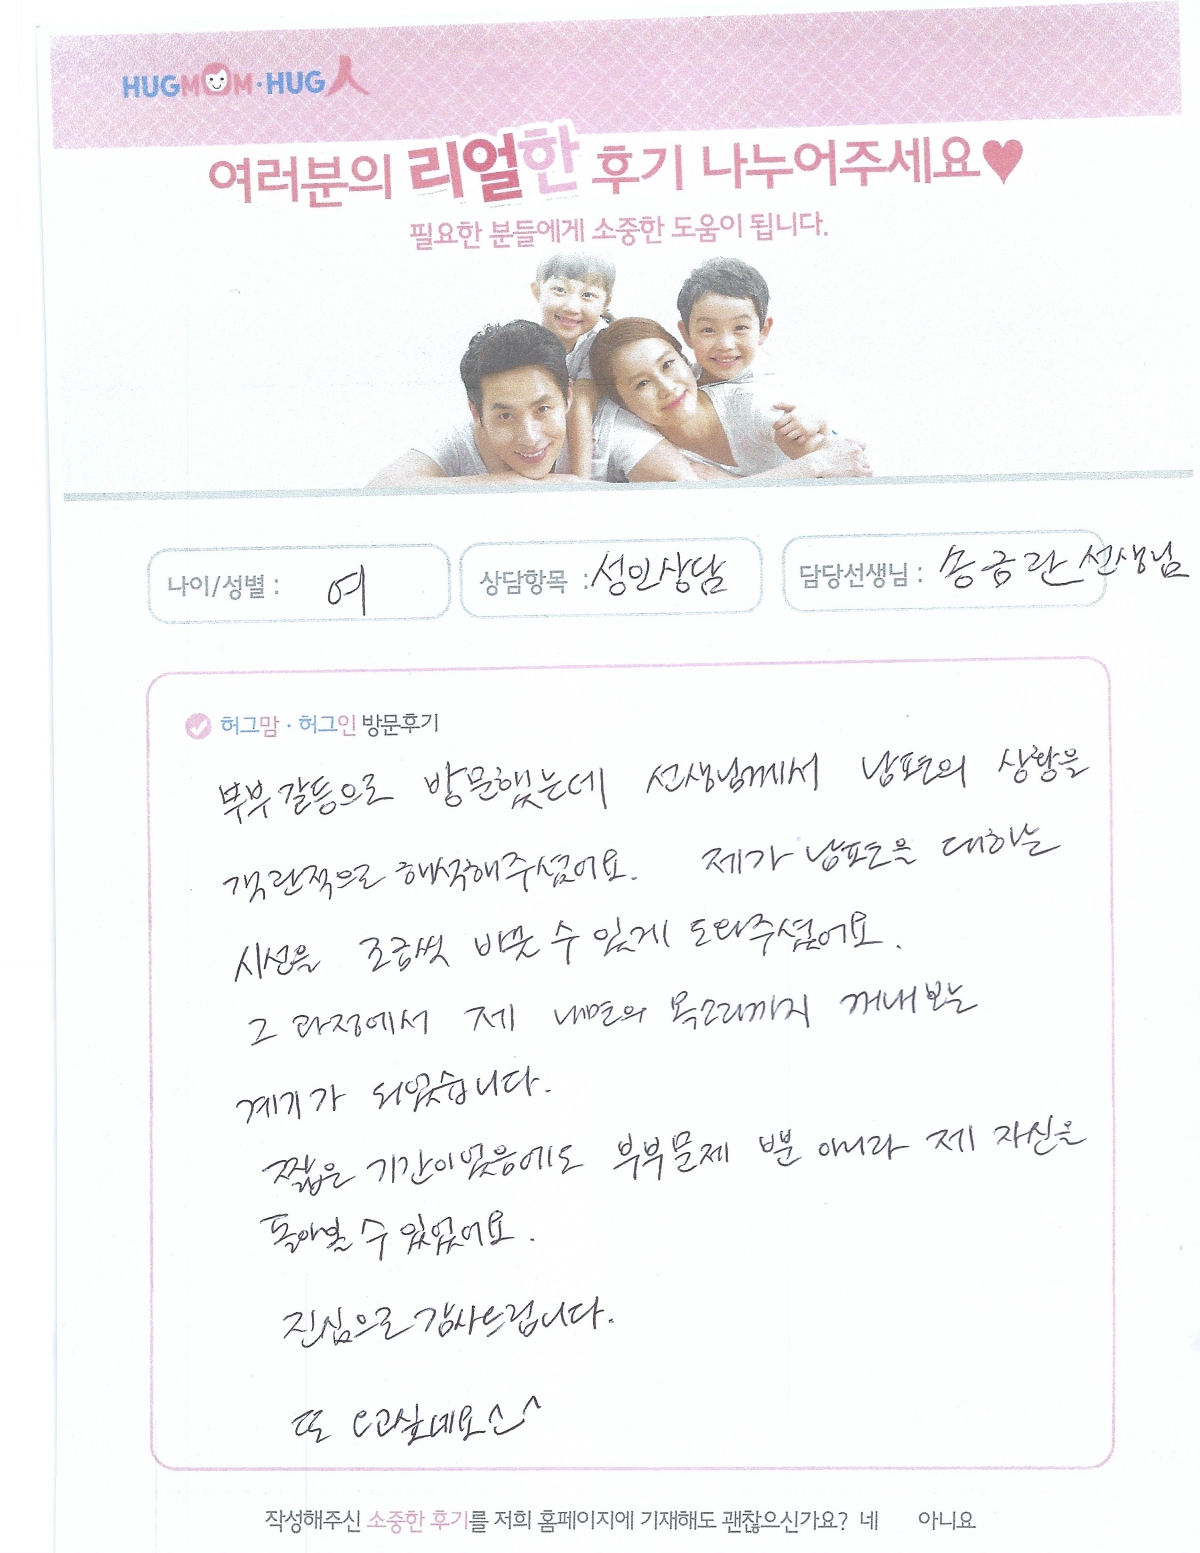 HUGMOM·HUG人
여러분의 리얼한 후기 나누어주세요♥
필요한 분들에게 소중한 도움이 됩니다.
나이/성별 : 여
상담항목 : 성인상담
담당선생님 : 송금란 선생님
허그맘 · 허그인 방문후기
부부갈등으로 방문했는데 선생님께서 남편의 상황을
객관적으로 해석해주셨어요. 제가 남편을 대하는
시선을 조금씩 바꿀 수 있게 도와주셨어요.
그 과정에서 제 내면의 목소리까지 꺼내보는
계기가 되었습니다.
짧은 기간이었음에도 부부문제 뿐 아니라 제 자신을
돌아볼 수 있었어요.
진심으로 감사드립니다.
또 오고싶네요^^
작성해주신 소중한 후기를 저희 홈페이지에 기재해도 괜찮으신가요? 네 아니요